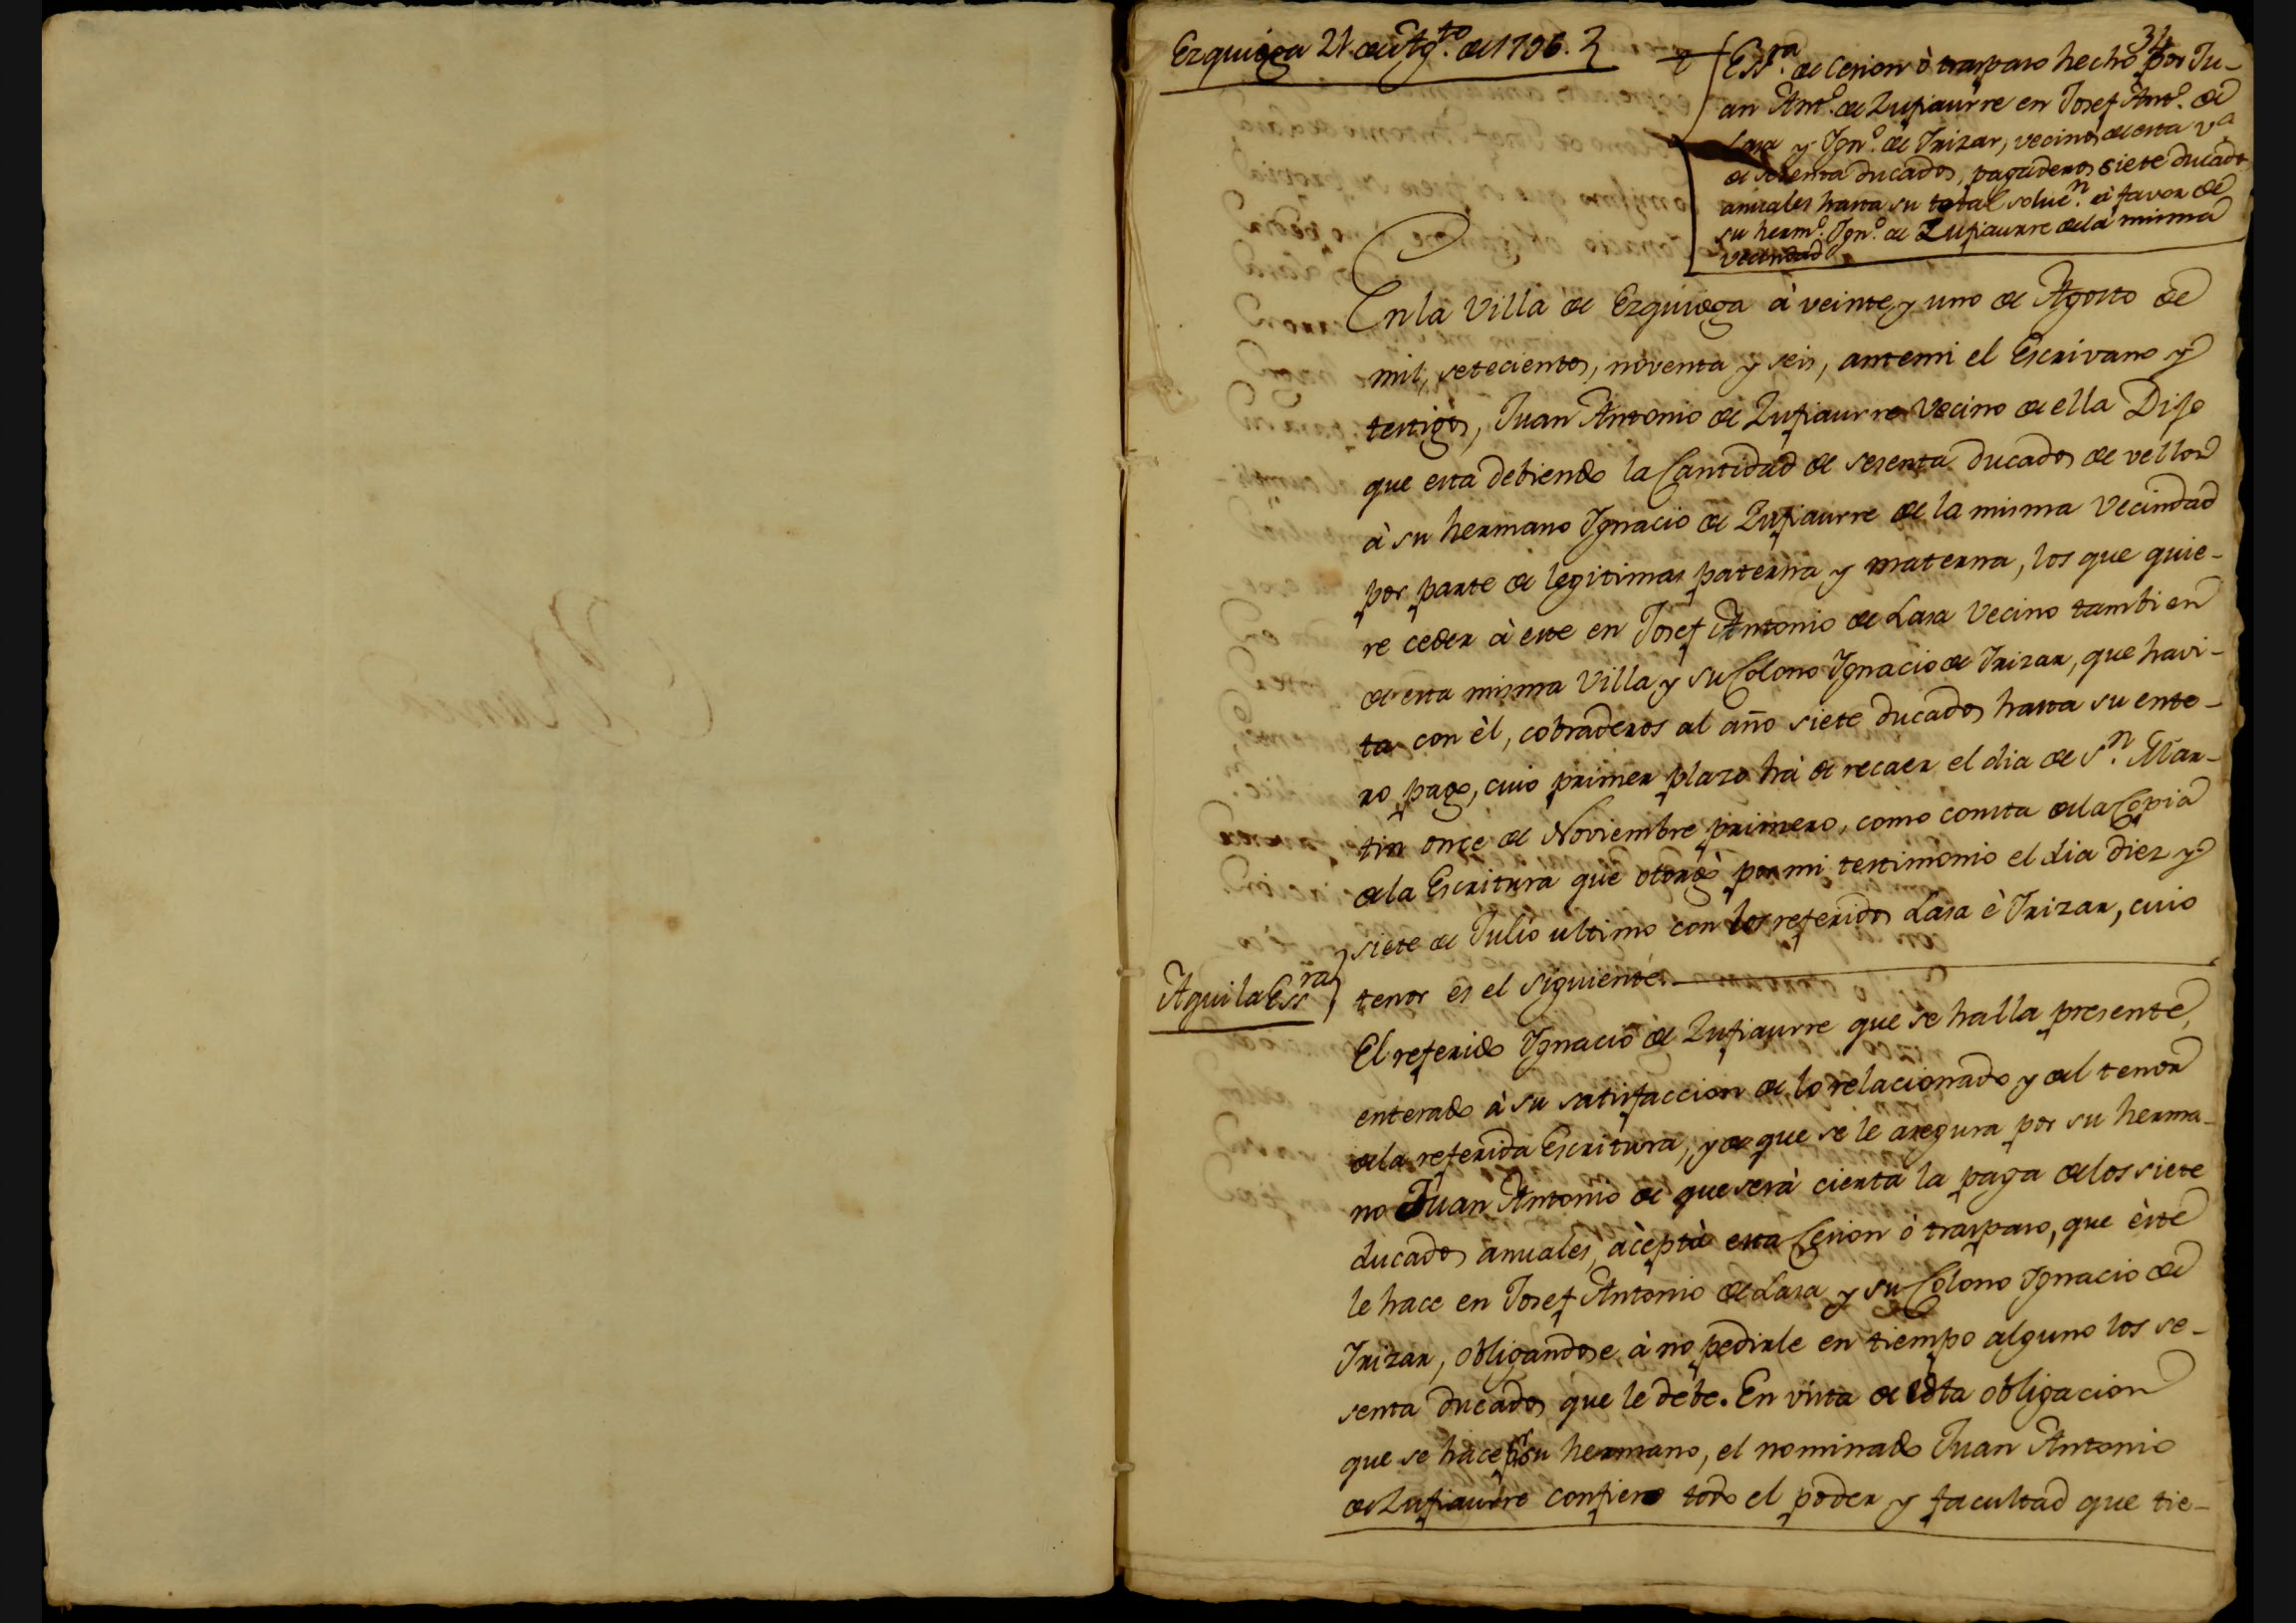 34
Ezquioga 21. de Ag.to de 1796.
Ess.ra de Cesion ò traspaso hecho por Ju-
an Ant.o de Zufiaurre en Josef Ant.o de
Lasa y Ign.o de Irizar, vecinos de esta V.a
de sesenta ducados, pagaderos siete ducados
anuales hasta su total soluc.n à favor de
su herm.o Ign.o de Zufiaurre de la misma
vecindad
En la Villa de Ezquioga à veinte y uno de Agosto de
mil, setecientos, noventa y seis, ante mi el Escrivano y
testigos, Juan Antonio de Zufiaurre Vecino de ella Dijo
que està debiendo la Cantidad de sesenta ducados de vellon
à su hermano Ignacio de Zufiaurre de la misma Vecindad
por parte de legitimas paterna y materna, los que quie-
re ceder à este en Josef Antonio de Lasa Vecino tambien
de esta misma Villa y su Colono Ignacio de Irizar, que havi-
ta con èl, cobraderos al año siete ducados hasta su ente-
ro pago, cuio primer plazo hà de recaer el dia de S.n Mar-
tin once de Noviembre primero, como consta de la Copia
de la Escritura que otorgò por mi testimonio el dia diez y
siete de Julio ultimo con los referidos Lasa è Irizar, cuio
Aqui la Ess.ra
tenor es el siguiente.
El referido Ignacio de Zufiaurre que se halla presente,
enterado à su satisfaccion de lo relacionado y del tenor
de la referida Escritura, y de que se le asegura por su herma-
no Juan Antonio de que serà cierta la paga de los siete
ducados anuales, acèpta esta Cesion ò traspaso, que èste
le hace en Josef Antonio de Lasa y su Colono Ignacio de
Irizar, obligandose à no pedirle en tiempo alguno los se-
senta ducados que le debe. En vista de esta obligacion
que se hace p.r su hermano, el nominado Juan Antonio
de Zufiaurre confiere todo el poder y facultad que tie-